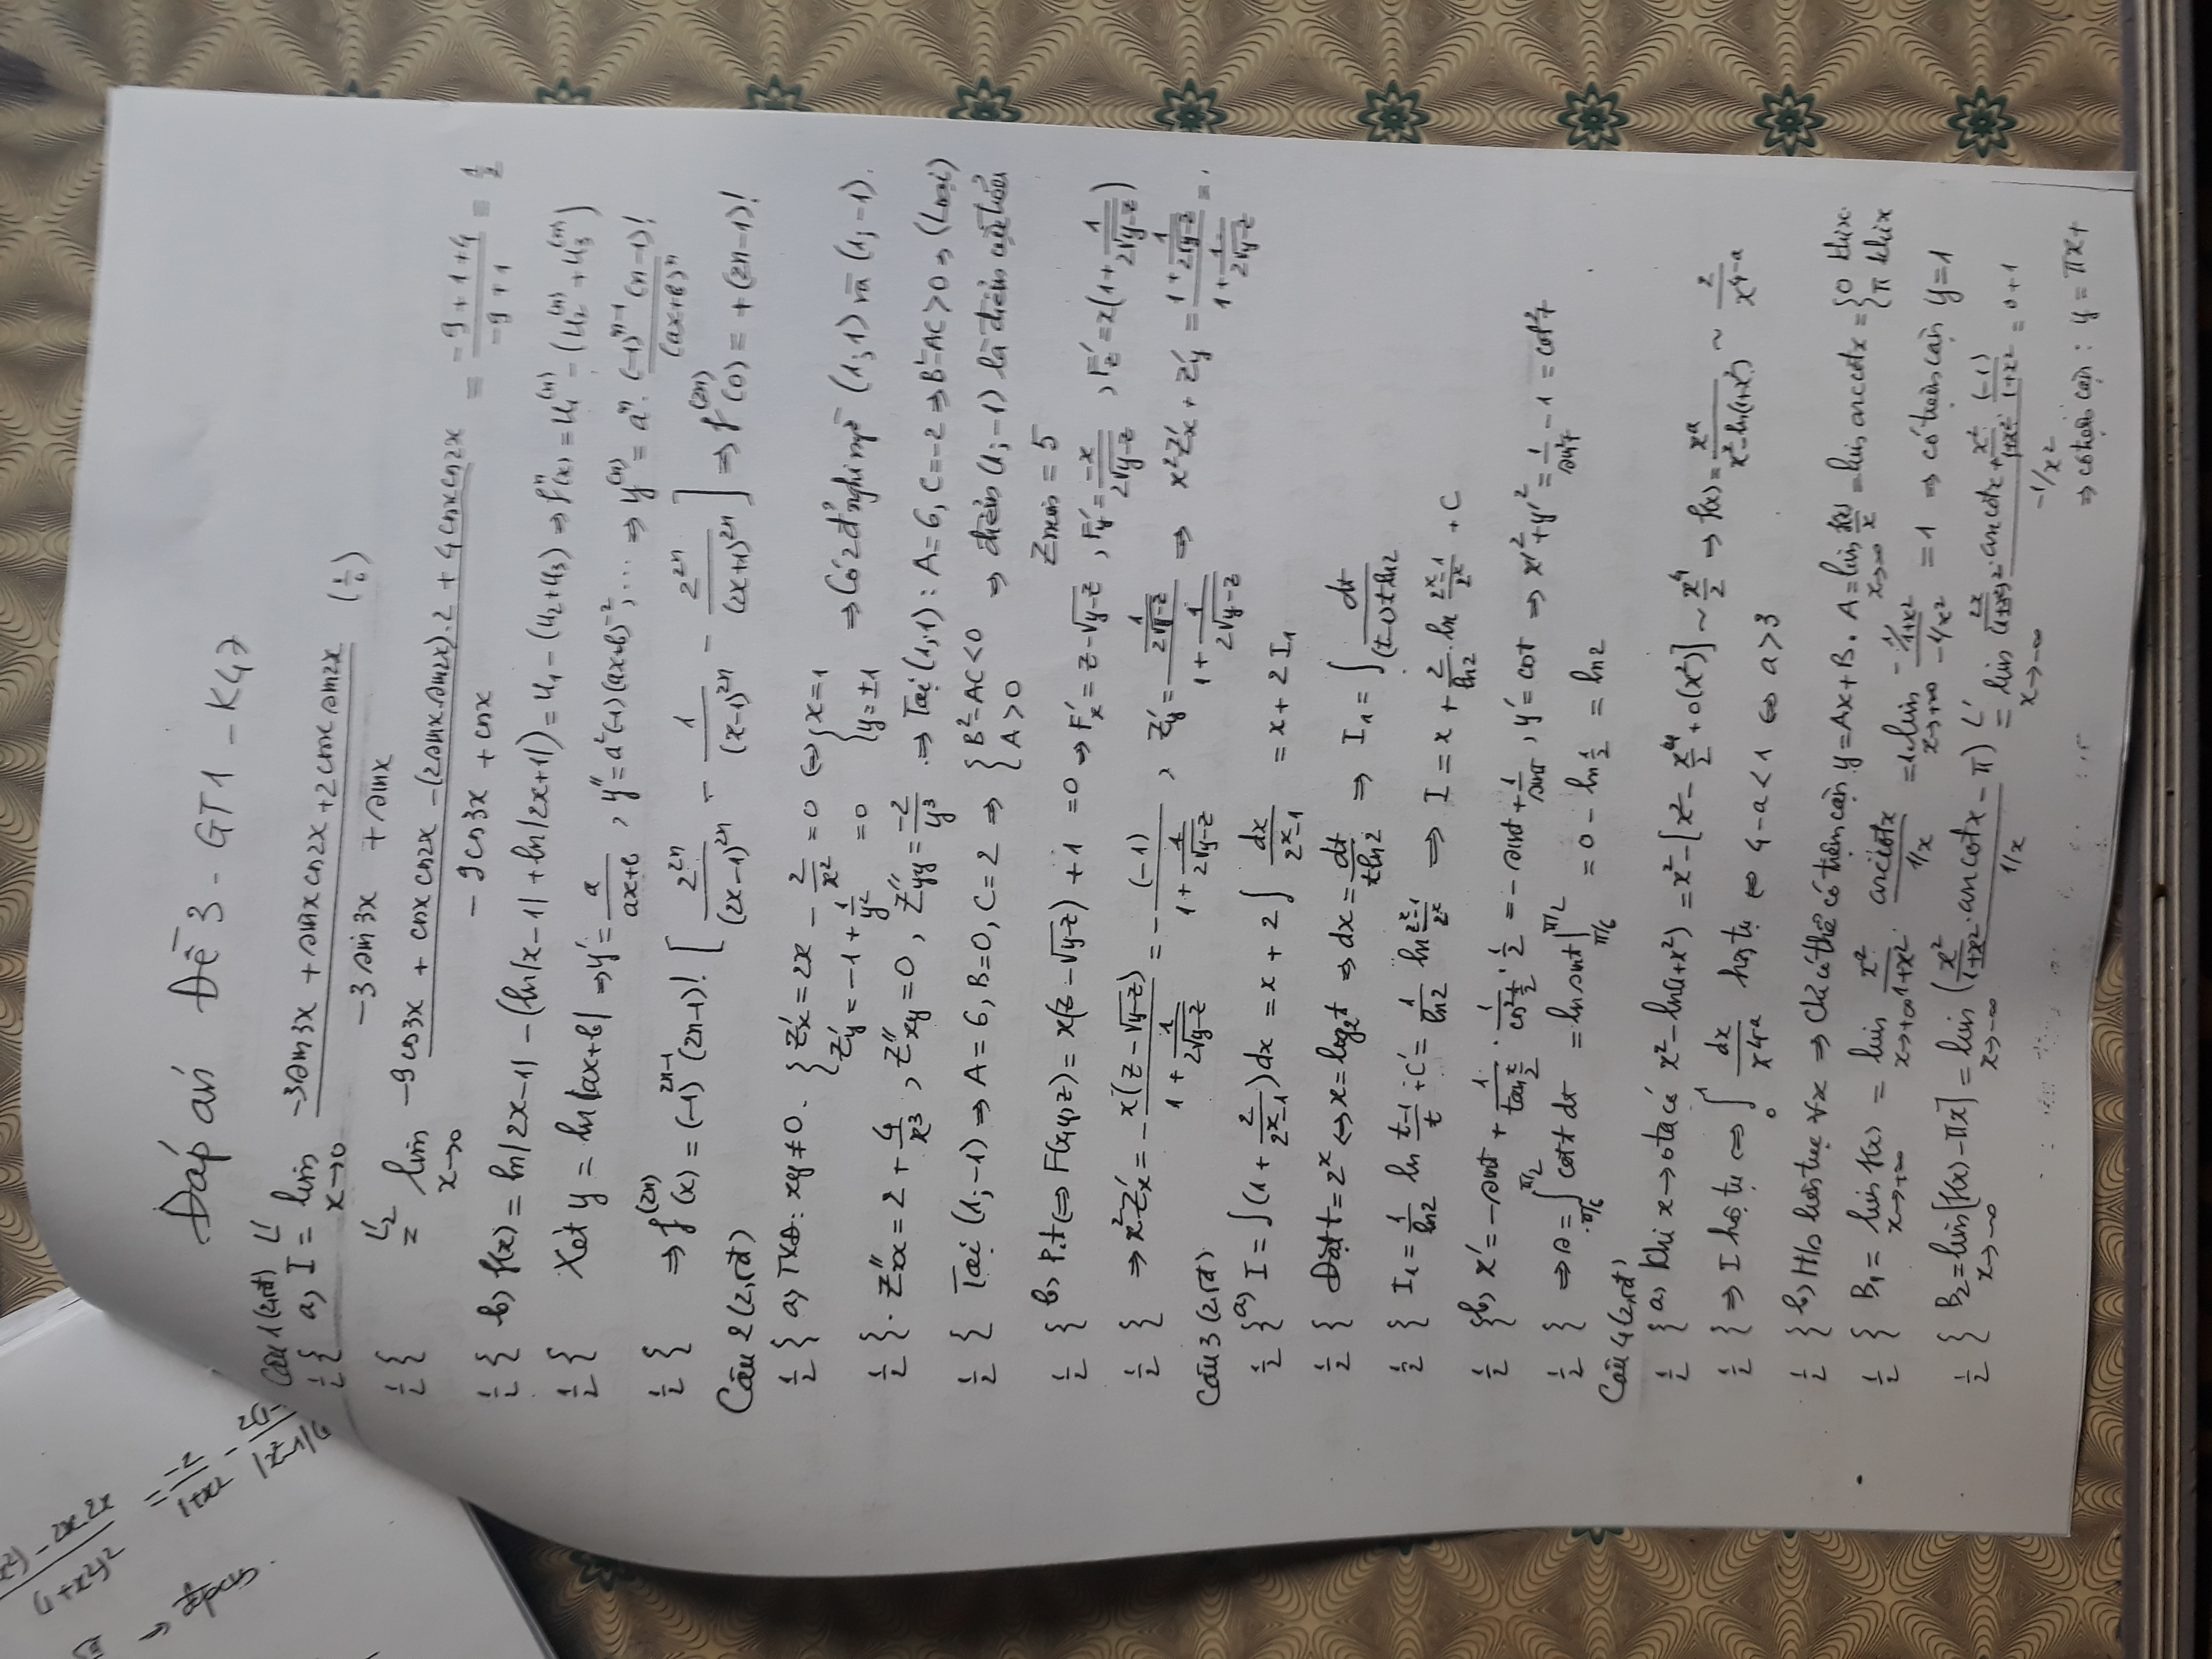 x²) - 2x.2x
(1+x²)²
= -2/(1+x²) -
→ đpcm.
Đáp án Đề 3 - GT1 - K47
Câu 1 (2,5đ)
1/2 { a, I =^{L'} lim_{x→0} (-3sin3x + sinxcos2x + 2cosx sin2x)/(-3sin3x + sinx) (0/0)
1/2 { =^{L'2} lim_{x→0} (-9cos3x + cosx cos2x - (2sinx.sin2x).2 + 4cosxcos2x)/(-9cos3x + cosx) = (-9+1+4)/(-9+1) = 1/2
1/2 { b, f(x) = ln|2x-1| - (ln|x-1| + ln|2x+1|) = u₁ - (u₂+u₃) ⇒ f^{n}(x) = u₁^{(n)} - (u₂^{(n)} + u₃^{(n)})
1/2 { Xét y = ln|ax+b| ⇒ y' = a/(ax+b), y'' = a²(-1)(ax+b)^{-2}; ... ⇒ y^{(n)} = a^n. (-1)^{n-1}(n-1)!/(ax+b)^n
1/2 { ⇒ f^{(2n)}(x) = (-1)^{2n-1}(2n-1)! [2^{2n}/(2x-1)^{2n} - 1/(x-1)^{2n} - 2^{2n}/(2x+1)^{2n}] ⇒ f^{(2n)}(0) = +(2n-1)!
Câu 2 (2,5đ)
1/2 { a, TXĐ: xy≠0. { Z'x = 2x - 2/x² = 0 ⇔ { x = 1
Z'y = -1 + 1/y² = 0 y = ±1 ⇒ Có 2 đ' nghi ngờ (1;1) và (1;-1).
1/2 { . Z''xx = 2 + 4/x³, Z''xy = 0, Z''yy = -2/y³ . ⇒ Tại (1;1): A=6, C=-2 ⇒ B²-AC>0 ⇒ (Loại)
1/2 { Tại (1;-1) ⇒ A=6, B=0, C=2 ⇒ { B²-AC<0 A>0 ⇒ điểm (1;-1) là điểm cực tiểu
Zmin = 5
1/2 { b, P.t ⇔ F(x,y,z) = x(z-√(y-z)) + 1 = 0 ⇒ F'x = z-√(y-z), F'y = -x/(2√(y-z)), F'z = x(1 + 1/(2√(y-z)))
1/2 { ⇒ x²Z'x = - x(z-√(y-z))/(1 + 1/(2√(y-z))) = - (-1)/(1 + 1/(2√(y-z))), Z'y = (1/(2√(y-z)))/(1 + 1/(2√(y-z))) ⇒ x²Z'x + Z'y = (1 + 1/(2√(y-z)))/(1 + 1/(2√(y-z))) =
Câu 3 (2,5đ)
1/2 { a, I = ∫(1 + 2/(2^x-1))dx = x + 2∫ dx/(2^x-1) = x + 2I₁
1/2 { Đặt t = 2^x ⇔ x = log₂t ⇒ dx = dt/(tln2) ⇒ I₁ = ∫ dt/((t-1)tln2)
1/2 { I₁ = 1/ln2 ln (t-1)/t + C' = 1/ln2 ln (2^x-1)/2^x ⇒ I = x + 2/ln2 . ln (2^x-1)/2^x + C
1/2 { b, x' = -sint + 1/tan(t/2) . 1/cos²(t/2) . 1/2 = -sint + 1/sint, y' = cot ⇒ x'² + y'² = 1/sin²t - 1 = cot²t
1/2 { ⇒ s = ∫_{π/6}^{π/2} cott dt = ln sint |_{π/6}^{π/2} = 0 - ln 1/2 = ln2
Câu 4 (2,5đ)
1/2 { a, Khi x→0 ta có x² - ln(1+x²) = x² - [x² - x⁴/2 + o(x²)] ~ x⁴/2 ⇒ f(x) = x^a/(x²-ln(1+x²)) ~ 2/x^{4-a}
1/2 { ⇒ I hội tụ ⇔ ∫_0^1 dx/x^{4-a} hội tụ ⇔ 4-a<1 ⇔ a>3
1/2 { b, H/s liên tục ∀x ⇒ Chỉ có thể có tiệm cận y = Ax+B. A = lim_{x→∞} f(x)/x = lim arccotx = { 0 khi x π khi x
1/2 { B₁ = lim_{x→+∞} f(x) = lim_{x→+∞} x²/(1+x²) . arccotx/(1/x) = 1.lim_{x→+∞} (-1/(1+x²))/(-1/x²) = 1 ⇒ có tiệm cận y=1
1/2 { B₂ = lim_{x→-∞} [f(x)-πx] = lim_{x→-∞} (x²/(1+x²) . arccotx - π)/(1/x) =^{L'} lim_{x→-∞} (2x/(1+x²)² . arccotx + x²/(1+x²) . (-1)/(1+x²))/(-1/x²) = 0+1
⇒ có tiệm cận: y = πx+